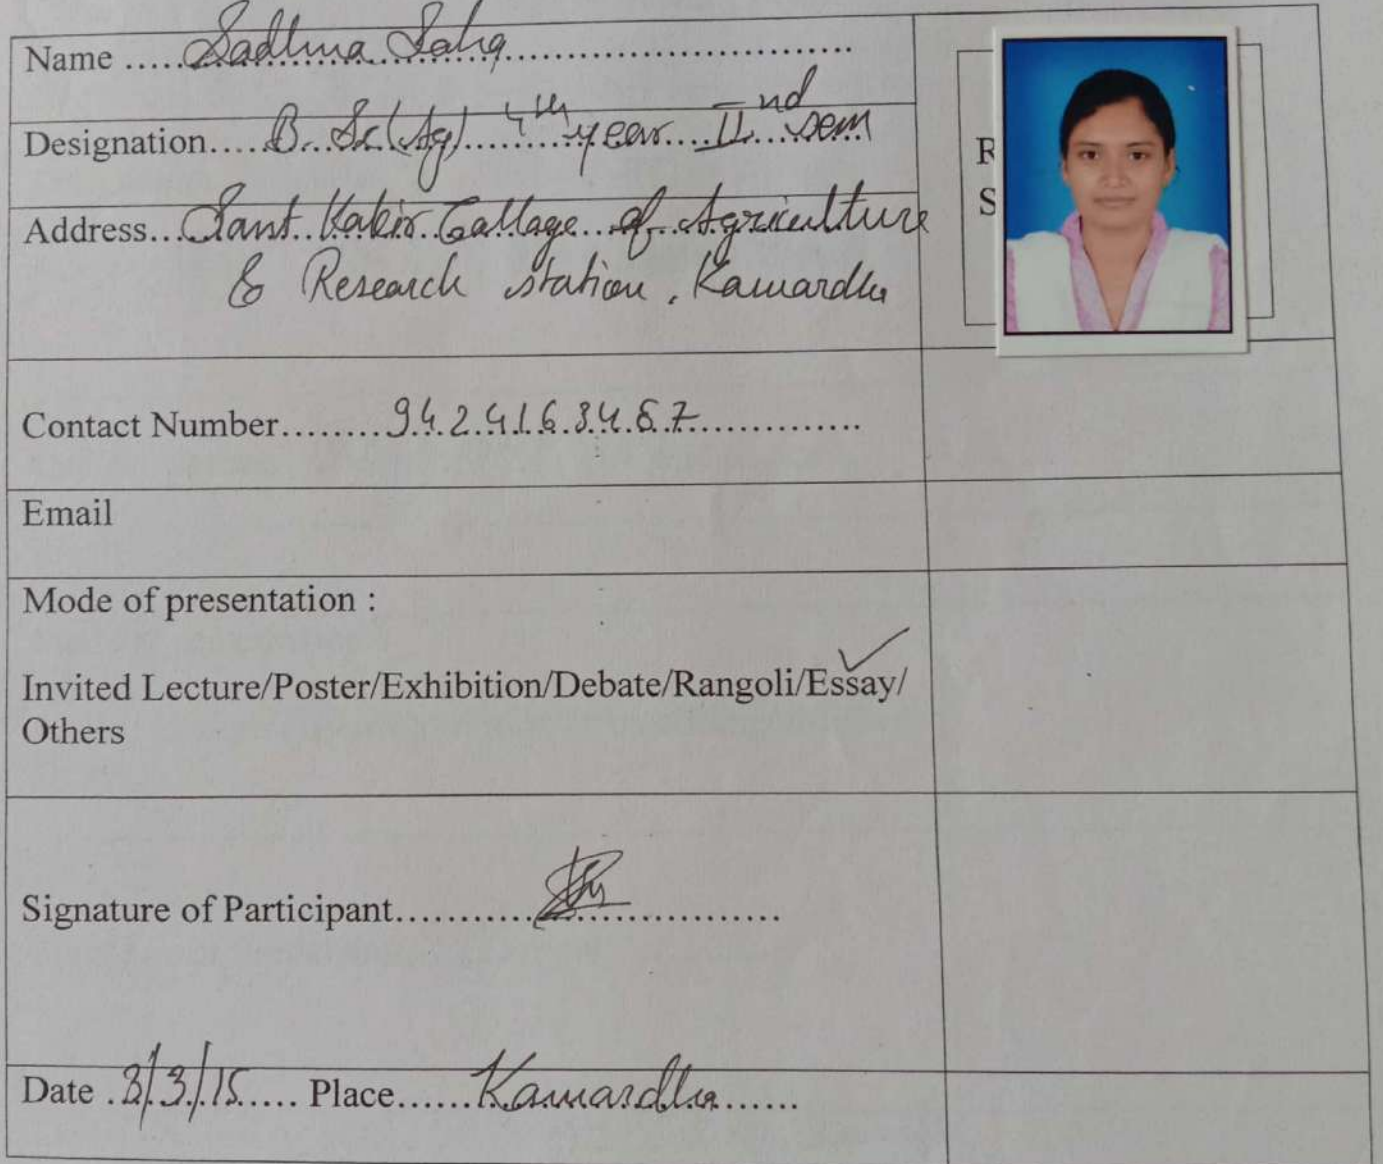 Name ..... Sadhna Sahu ..............................
Designation..... B. Sc (Ag) 4th year IInd sem
Address... Sant Kabir Callage of Agriculture
& Research station, Kawardha
R
S
Contact Number........ 9424163467 ..............
Email
Mode of presentation :
Invited Lecture/Poster/Exhibition/Debate/Rangoli/Essay/
Others
Signature of Participant...........................
Date . 8/3/15 ..... Place...... Kawardha ......